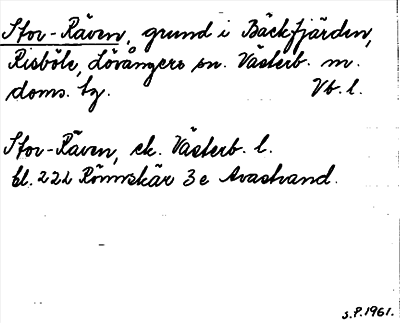 Stor-Räven, grund i Bäckfjärden,
Risböle, Lövångers sn. Västerb. m.
doms. tg. Vb. l.
Stor-Räven, ek. Västerb. l.
bl. 222 Rönnskär 3e Avastrand.
S.P. 1961.